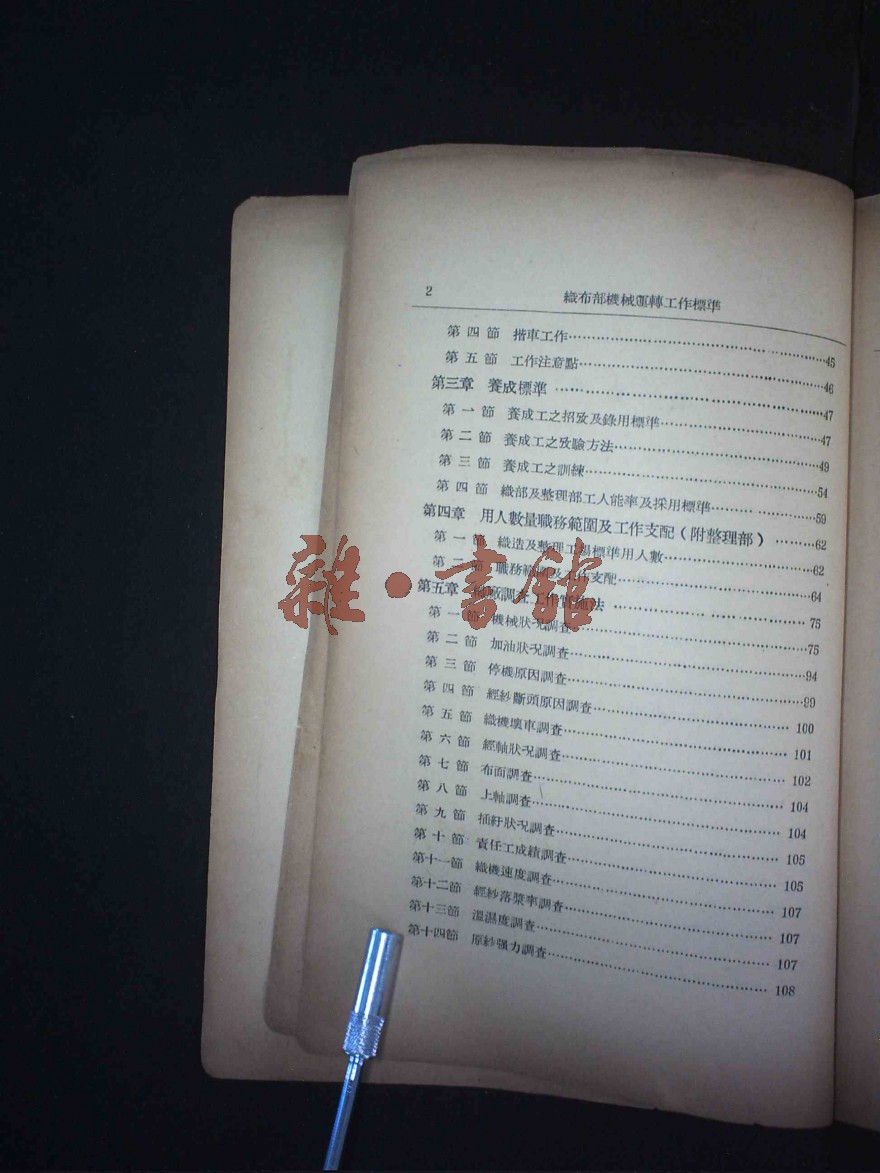 2 織布部機械運轉工作標準
第四節 揩車工作……45
第五節 工作注意點……46
第三章 養成標準……47
第一節 養成工之招攷及錄用標準……47
第二節 養成工之攷驗方法……49
第三節 養成工之訓練……54
第四節 織部及整理部工人能率及採用標準……59
第四章 用人數量職務範圍及工作支配（附整理部）……62
第一節 織造及整理工場標準用人數……62
第二節 職務範圍及工作支配……64
第五章 調查工作實施法……75
第一節 機械狀况調查……75
第二節 加油狀况調查……94
第三節 停機原因調查……99
第四節 經紗斷頭原因調查……100
第五節 織機壞車調查……101
第六節 經軸狀况調查……102
第七節 布面調查……104
第八節 上軸調查……104
第九節 插紆狀况調查……105
第十節 責任工成績調查……105
第十一節 織機速度調查……107
第十二節 經紗落漿率調查……107
第十三節 溫濕度調查……107
第十四節 原紗强力調查……108
雜·書館